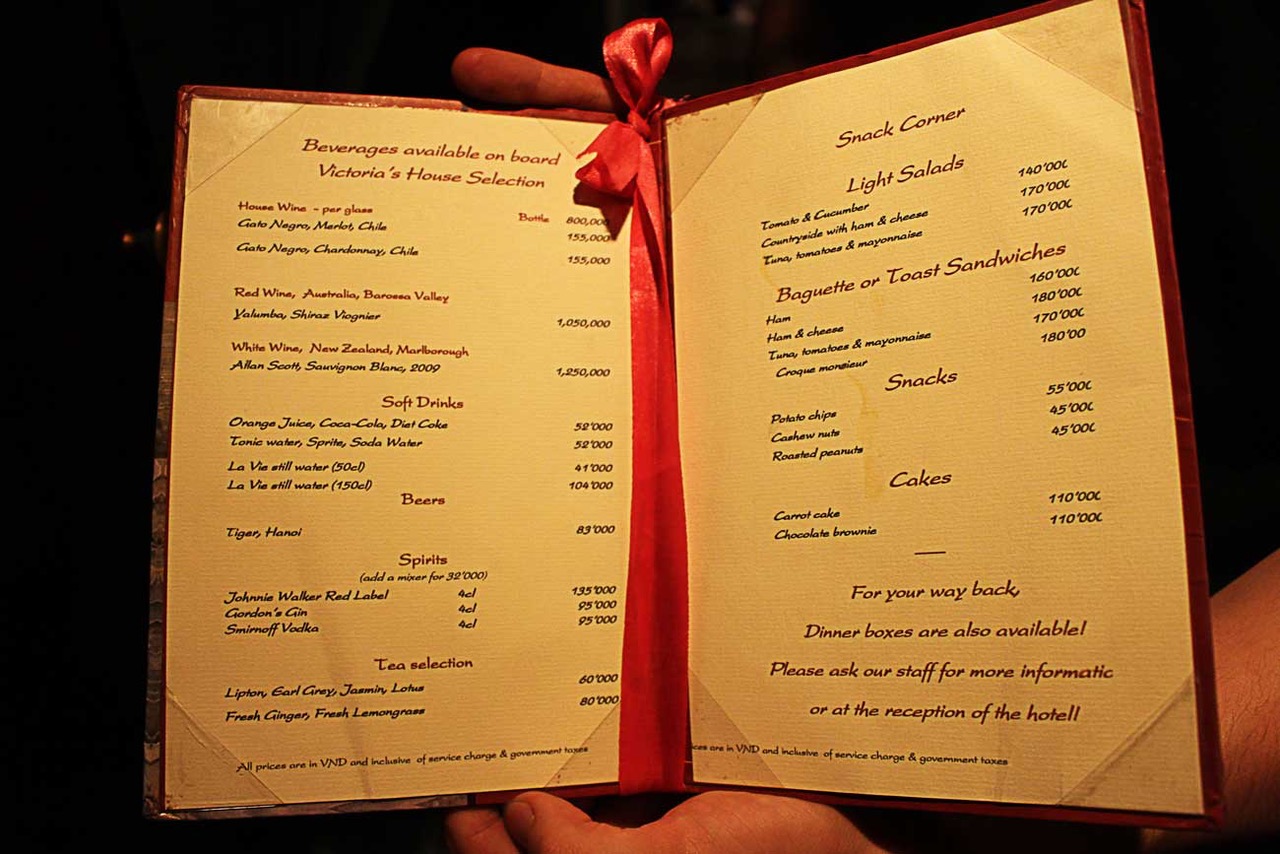 Beverages available on board
Victoria's House Selection
House Wine - per glass
Bottle 800,000
Gato Negro, Merlot, Chile 155,000
Gato Negro, Chardonnay, Chile 155,000
Red Wine, Australia, Barossa Valley
Yalumba, Shiraz Viognier 1,050,000
White Wine, New Zealand, Marlborough
Allan Scott, Sauvignon Blanc, 2009 1,250,000
Soft Drinks
Orange Juice, Coca-Cola, Diet Coke 52'000
Tonic water, Sprite, Soda Water 52'000
La Vie still water (50cl) 41'000
La Vie still water (150cl) 104'000
Beers
Tiger, Hanoi 83'000
Spirits
(add a mixer for 32'000)
Johnnie Walker Red Label 4cl 135'000
Gordon's Gin 4cl 95'000
Smirnoff Vodka 4cl 95'000
Tea selection
Lipton, Earl Grey, Jasmin, Lotus 60'000
Fresh Ginger, Fresh Lemongrass 80'000
All prices are in VND and inclusive of service charge & government taxes
Snack Corner
Light Salads
Tomato & Cucumber 140'000
Countryside with ham & cheese 170'000
Tuna, tomatoes & mayonnaise 170'000
Baguette or Toast Sandwiches
Ham 160'000
Ham & cheese 180'000
Tuna, tomatoes & mayonnaise 170'000
Croque monsieur 180'00
Snacks
Potato chips 55'000
Cashew nuts 45'000
Roasted peanuts 45'000
Cakes
Carrot cake 110'000
Chocolate brownie 110'000
For your way back,
Dinner boxes are also available!
Please ask our staff for more informatic
or at the reception of the hotel!
ices are in VND and inclusive of service charge & government taxes